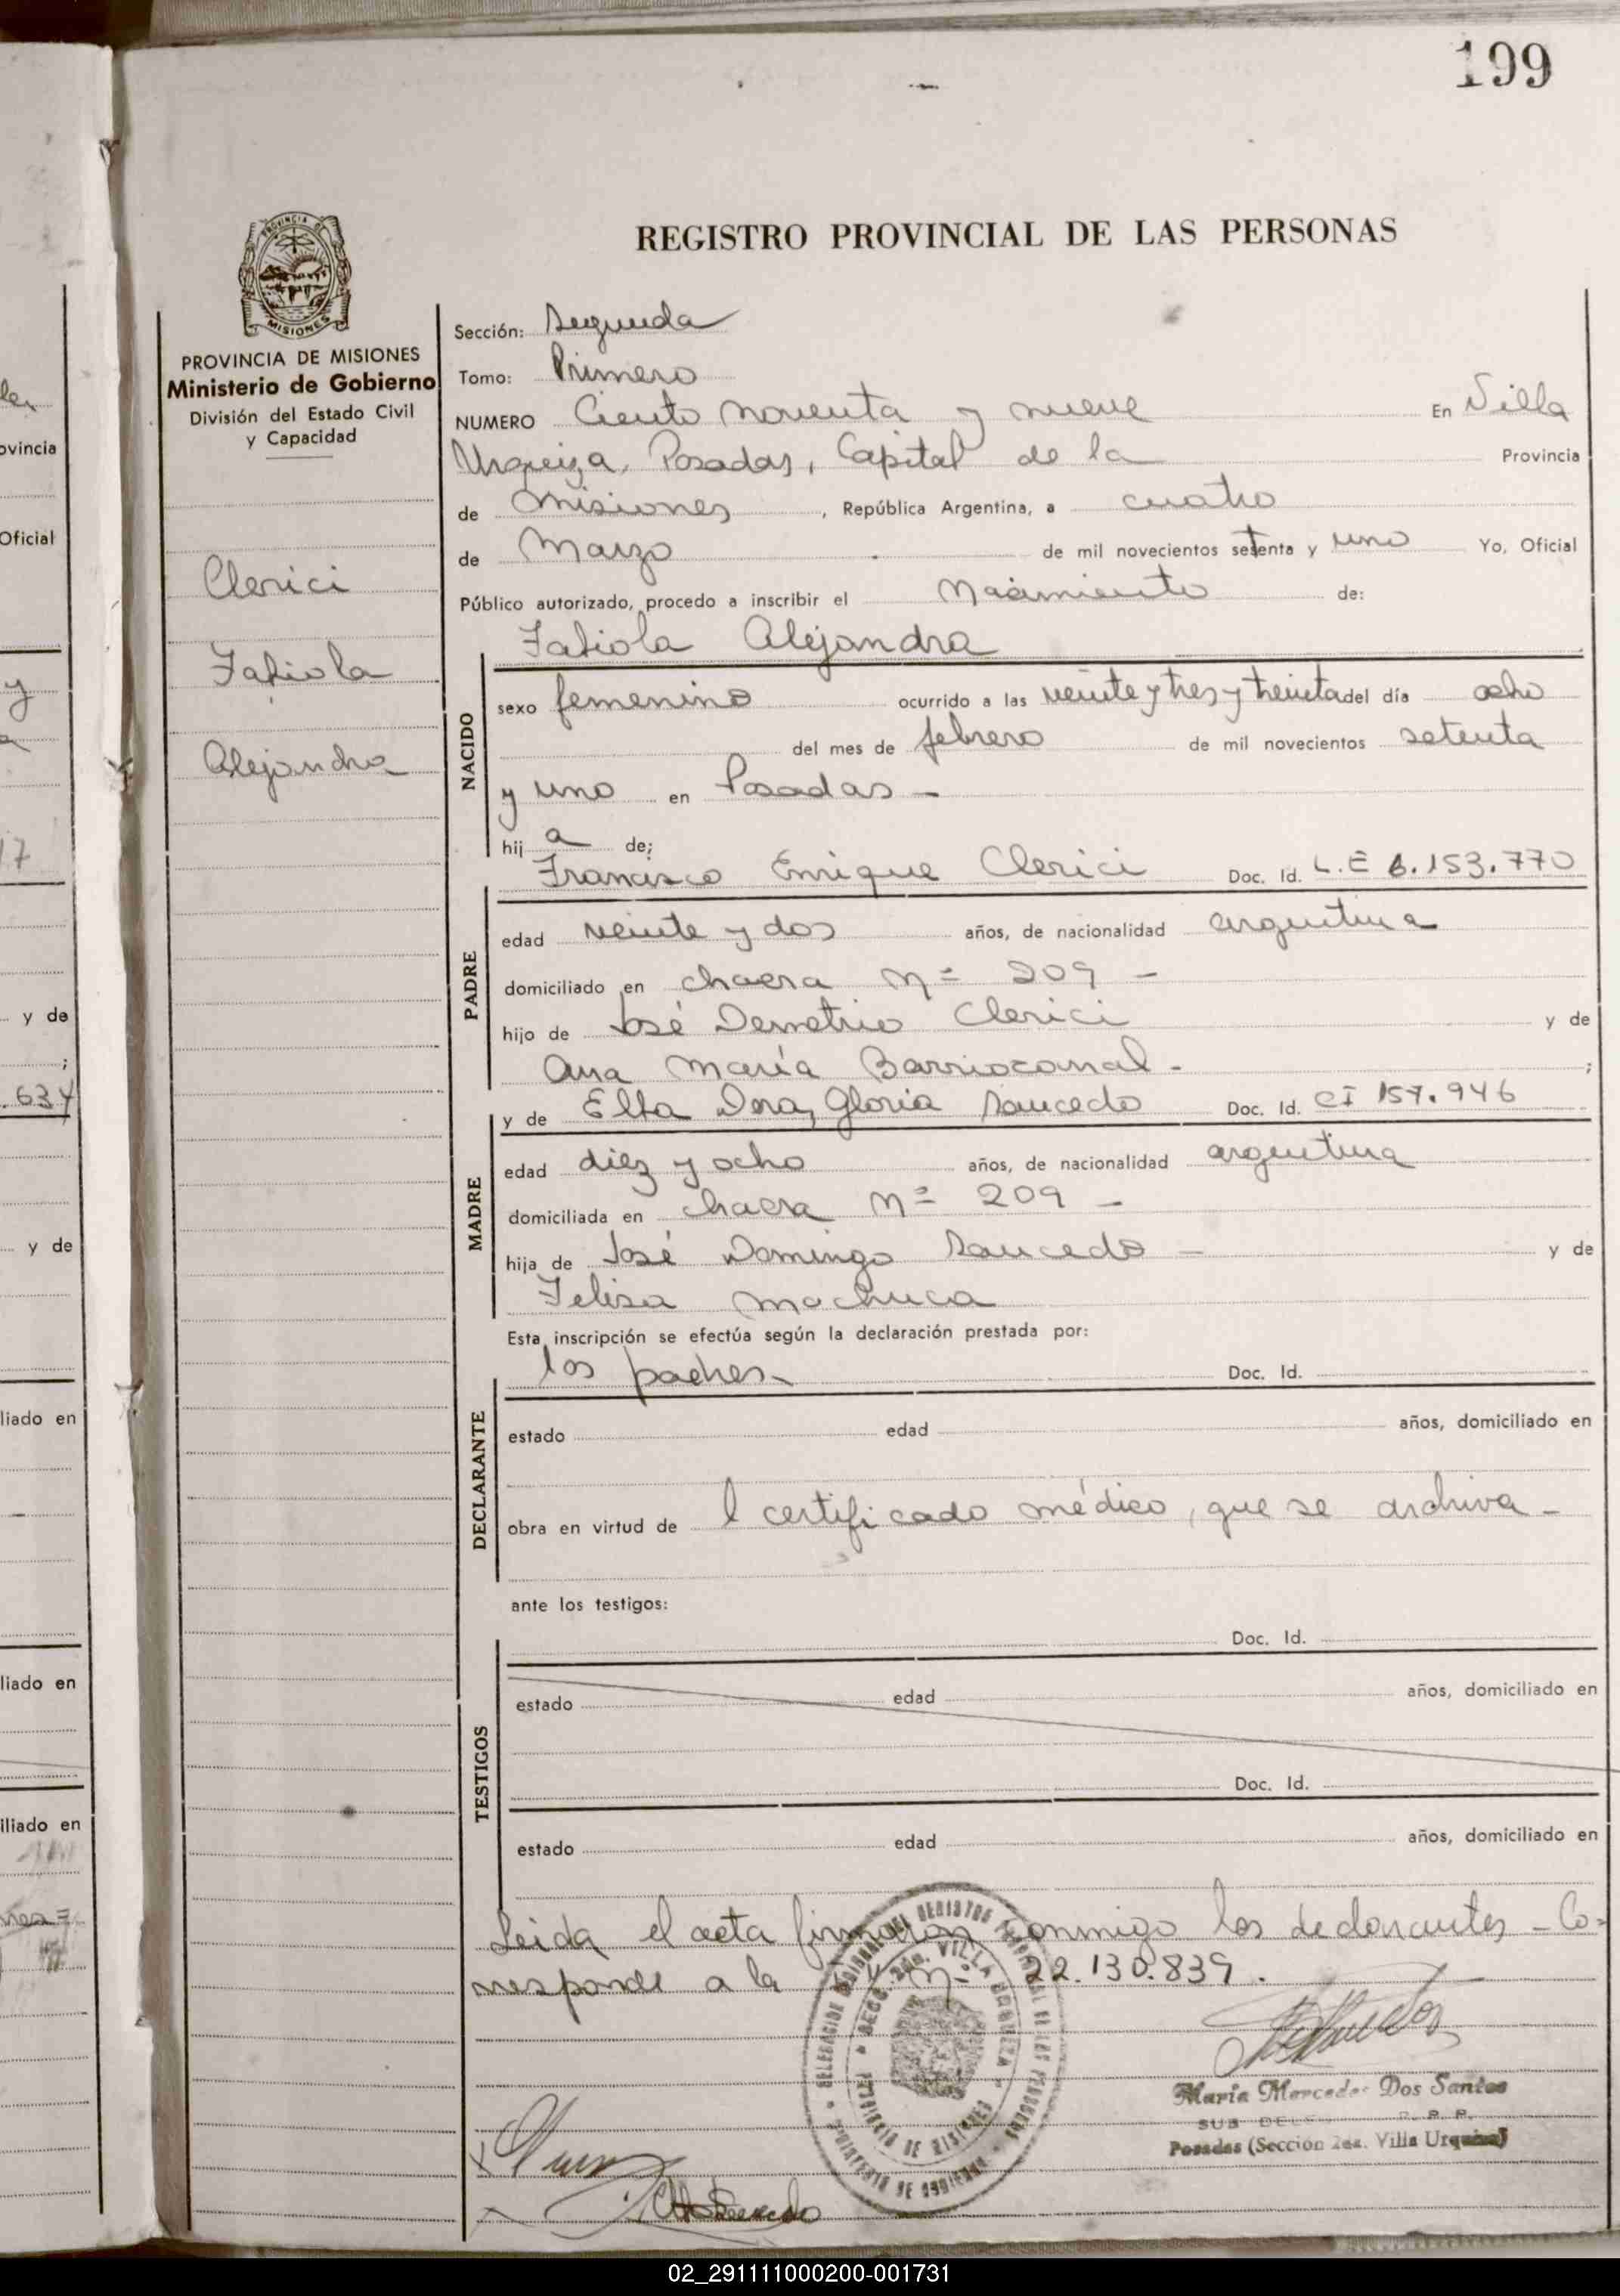 199
REGISTRO PROVINCIAL DE LAS PERSONAS
PROVINCIA DE MISIONES
Ministerio de Gobierno
División del Estado Civil
y Capacidad
Clerici
Fabiola
Alejandra
Sección: Segunda
Tomo: Primero
NUMERO Ciento noventa y nueve En Villa
Urquiza, Posadas, Capital de la Provincia
de Misiones, República Argentina, a cuatro
de Marzo de mil novecientos setenta y uno Yo, Oficial
Público autorizado, procedo a inscribir el Nacimiento de:
Fabiola Alejandra
NACIDO
sexo femenino ocurrido a las veinte y tres y treinta del día ocho
del mes de febrero de mil novecientos setenta
y uno en Posadas -
hij a de;
Francisco Enrique Clerici Doc. Id. L.E 8.153.770
PADRE
edad veinte y dos años, de nacionalidad argentina
domiciliado en chacra Nº 209 -
hijo de José Demetrio Clerici y de
Ana María Barriocanal - ;
y de Elba Gloria Saucedo Doc. Id. CI 157.946
MADRE
edad diez y ocho años, de nacionalidad argentina
domiciliada en chacra Nº 209 -
hija de José Domingo Saucedo - y de
Felisa Machuca
Esta inscripción se efectúa según la declaración prestada por:
los padres - Doc. Id.
DECLARANTE
estado edad años, domiciliado en
obra en virtud de l certificado médico, que se archiva -
ante los testigos:
Doc. Id.
TESTIGOS
estado edad años, domiciliado en
Doc. Id.
estado edad años, domiciliado en
Leida el acta firmaron conmigo los declarantes - Co-
rresponde a la Nº 22.130.839.
María Mercedes Dos Santos
SUB R. P. P.
Posadas (Sección 2da. Villa Urquiza)
Saucedo
02_291111000200-001731